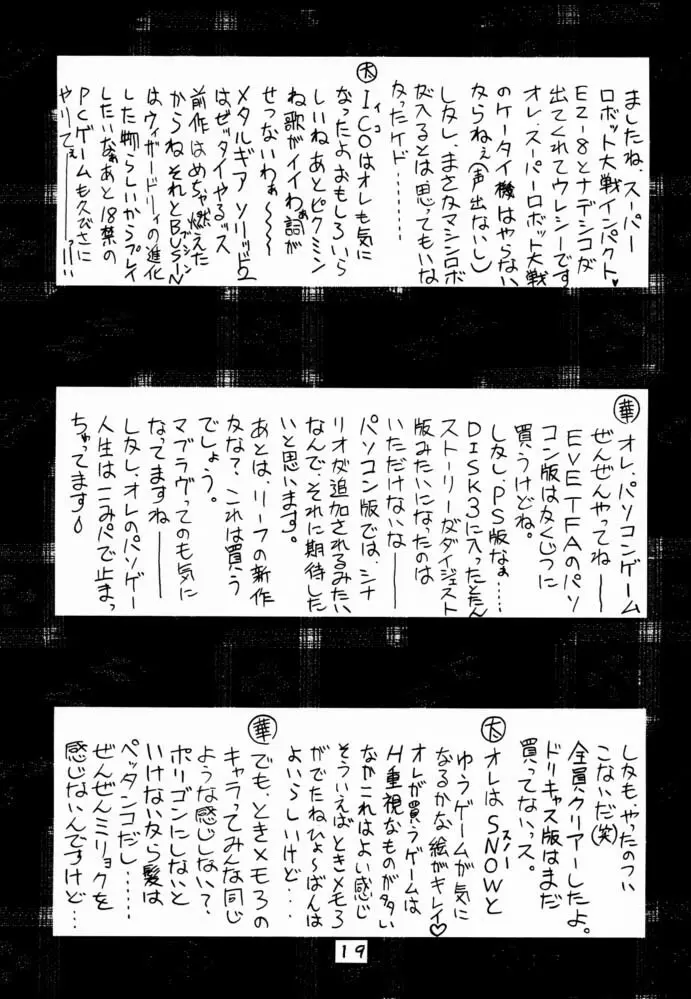 ましたね、スーパー
ロボット大戦インパクト♥
EZ-8とナデシコが
出てくれてウレシーです
オレ、スーパーロボット大戦
のケータイ機はやらない
からねぇ(声出ないし)
しかし、まさかマシンロボ
が入るとは思ってもいな
かったケド………
太
ICOはオレも気に
イコ
なったよおもしろいら
しいねあとピクミン
ね歌がイイわぁ詞が
せつないわぁ〜〜〜
メタルギアソリッド2
はゼッタイやるッス
前作はめちゃ燃えた
からねそれとBUSIN
ブシン
はウィザードリィの進化
した物らしいからプレイ
したいなぁあと18禁の
PCゲームも久びさに
やりてぇ―――っ!!
華
オレ、パソコンゲーム
ぜんぜんやってね――
EVE TFAのパソ
コン版はかくじつに
買うけどね。
しかし、PS版なぁ……
DISK3に入ったとたん
ストーリーがダイジェスト
版みたいになったのは
いただけないな――
パソコン版では、シナ
リオが追加されるみたい
なんで、それに期待した
いと思います。
あとは、リーフの新作
かな?、これは買う
でしょう。
マブラヴってのも気に
なってますね――
しかし、オレのパソゲー
人生はこみパで止まっ
ちゃってます
しかも、やったのつい
こないだ(笑)
全員クリアーしたよ。
ドリキャス版はまだ
買ってないっス。
太
オレはSNOWと
スノー
ゆうゲームが気に
なるかな絵がキレイ♡
オレが買うゲームは
H重視なものが多い
なかこれはよい感じ
そういえばときメモ3
がでたねひょ〜ばんは
よいらしいけど…
華
でも、ときメモ3の
キャラってみんな同じ
ような感じしない?
ポリゴンにしないと
いけないから髪は
ペッタンコだし……
ぜんぜんミリョクを
感じないんですけど…
19